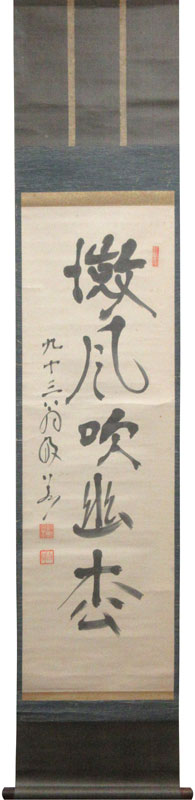 微風吹幽松
九十三翁